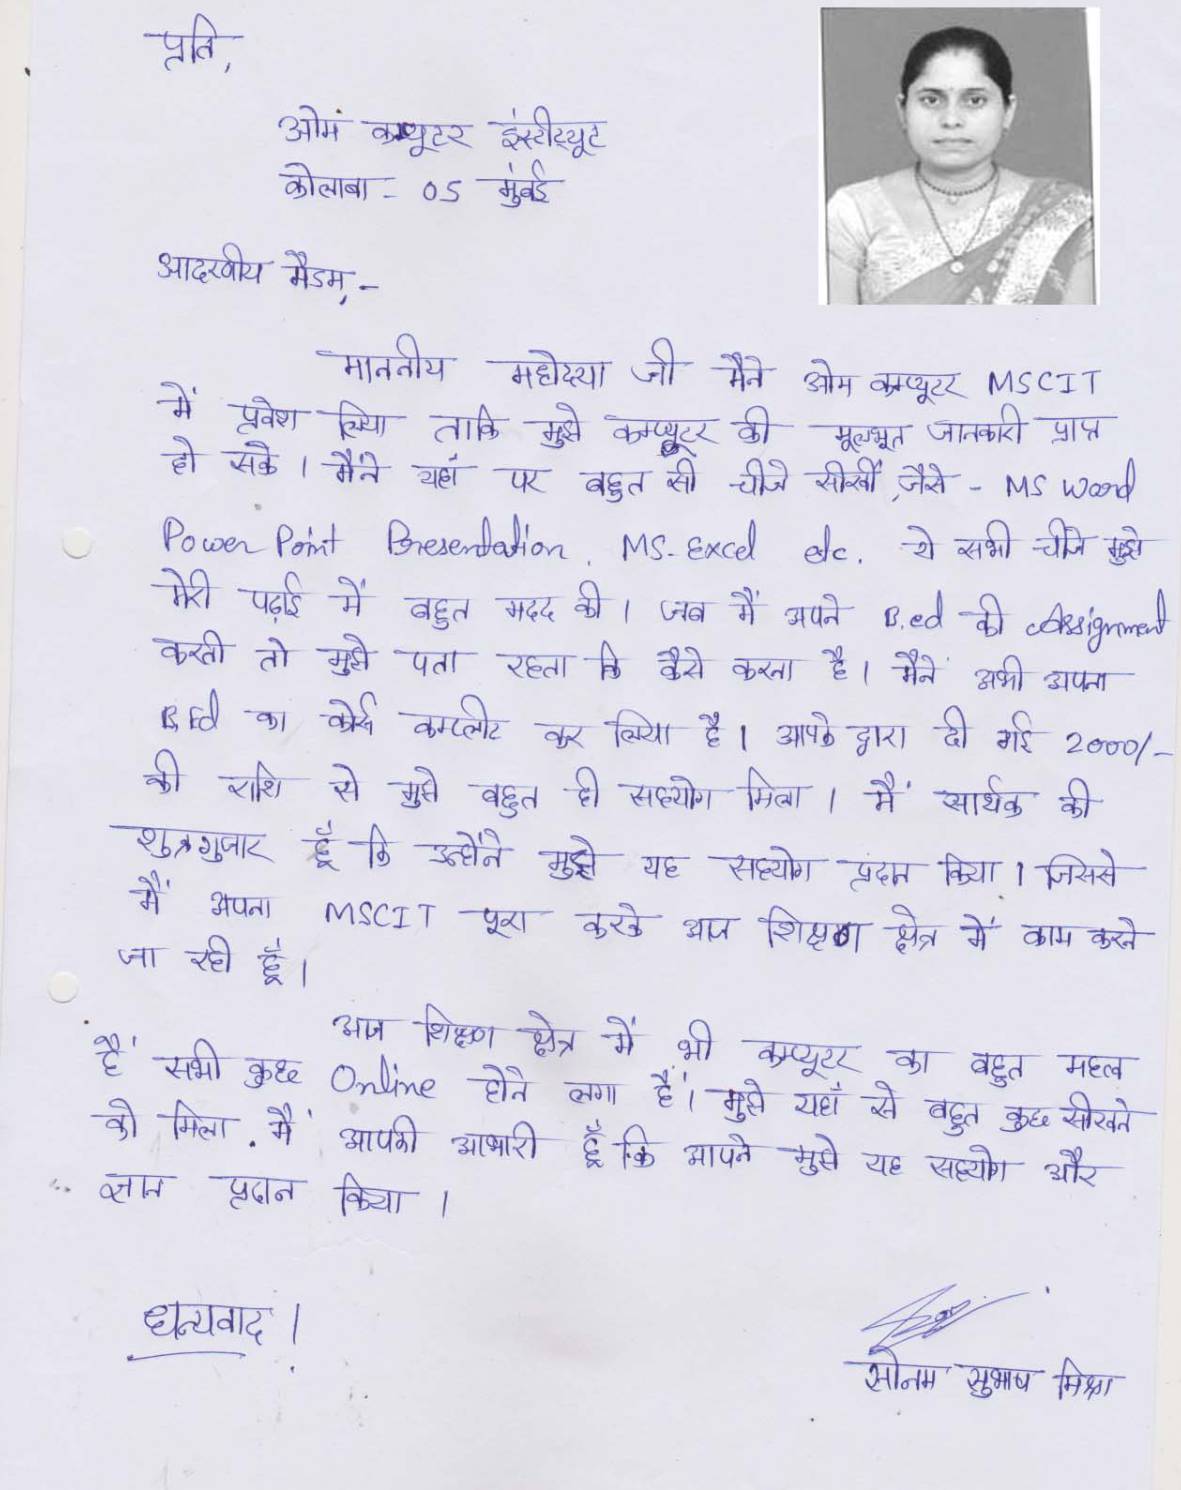 प्रति,
ओम कम्प्यूटर इंस्टीट्यूट
कोलाबा - 05 मुंबई
आदरणीय मैडम,-
माननीय महोदया जी मैने ओम कम्प्यूटर MSCIT
में प्रवेश लिया ताकि मुझे कम्प्यूटर की मूलभूत जानकारी प्राप्त
हो सके । मैंने यहाँ पर बहुत सी चीजे सीखीं, जैसे - MS Word
Power Point Presendation, MS-Excel etc. ये सभी चीजे मुझे
मेरी पढ़ाई में बहुत मदद की । जब मैं अपने B.ed की Assignment
करती तो मुझे पता रहता कि कैसे करना है । मैंने अभी अपना
B.Ed का कोर्स कम्प्लीट कर लिया है । आपके द्वारा दी गई 2000/-
की राशि से मुझे बहुत ही सहयोग मिला । मैं सार्थक की
शुक्रगुजार हूँ कि उन्होंने मुझे यह सहयोग प्रदान किया । जिससे
मैं अपना MSCIT पूरा करके आज शिक्षण क्षेत्र में काम करने
जा रही हूँ ।
आज शिक्षण क्षेत्र में भी कम्प्यूटर का बहुत महत्व
हैं सभी कुछ Online होने लगा हैं । मुझे यहाँ से बहुत कुछ सीखने
को मिला . मैं आपकी आभारी हूँ कि आपने मुझे यह सहयोग और
ज्ञान प्रदान किया ।
धन्यवाद ।
सोनम सुभाष मिश्रा